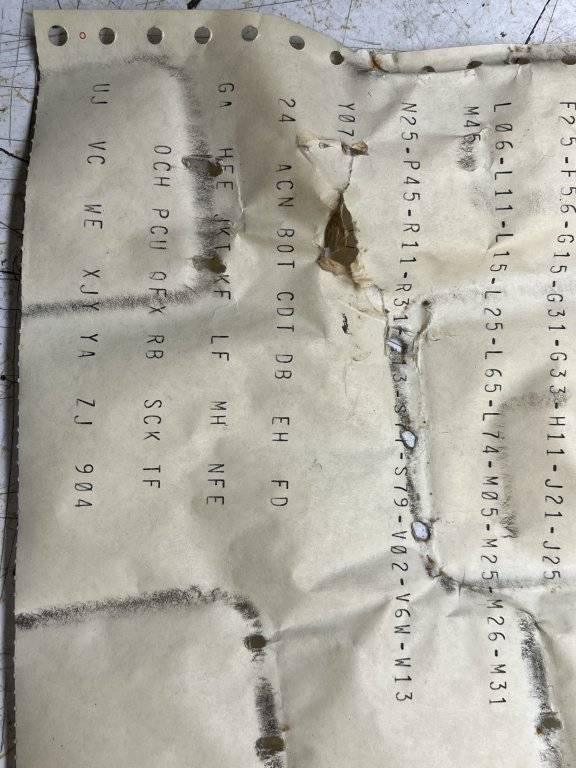 F25-F56-G15-G31-G33-H11-J21-J25
L06-L11-L15-L25-L65-L74-M05-M25-M26-M31
M46
N25-P45-R11-R31 S79-V02-V6W-W13
Y07
24 ACN BOT CDT DB EH FD
GA HEE JKT KF LF MH NFE
OCH PCU QFX RB SCK TF
UJ VC WE XJY YA ZJ 904